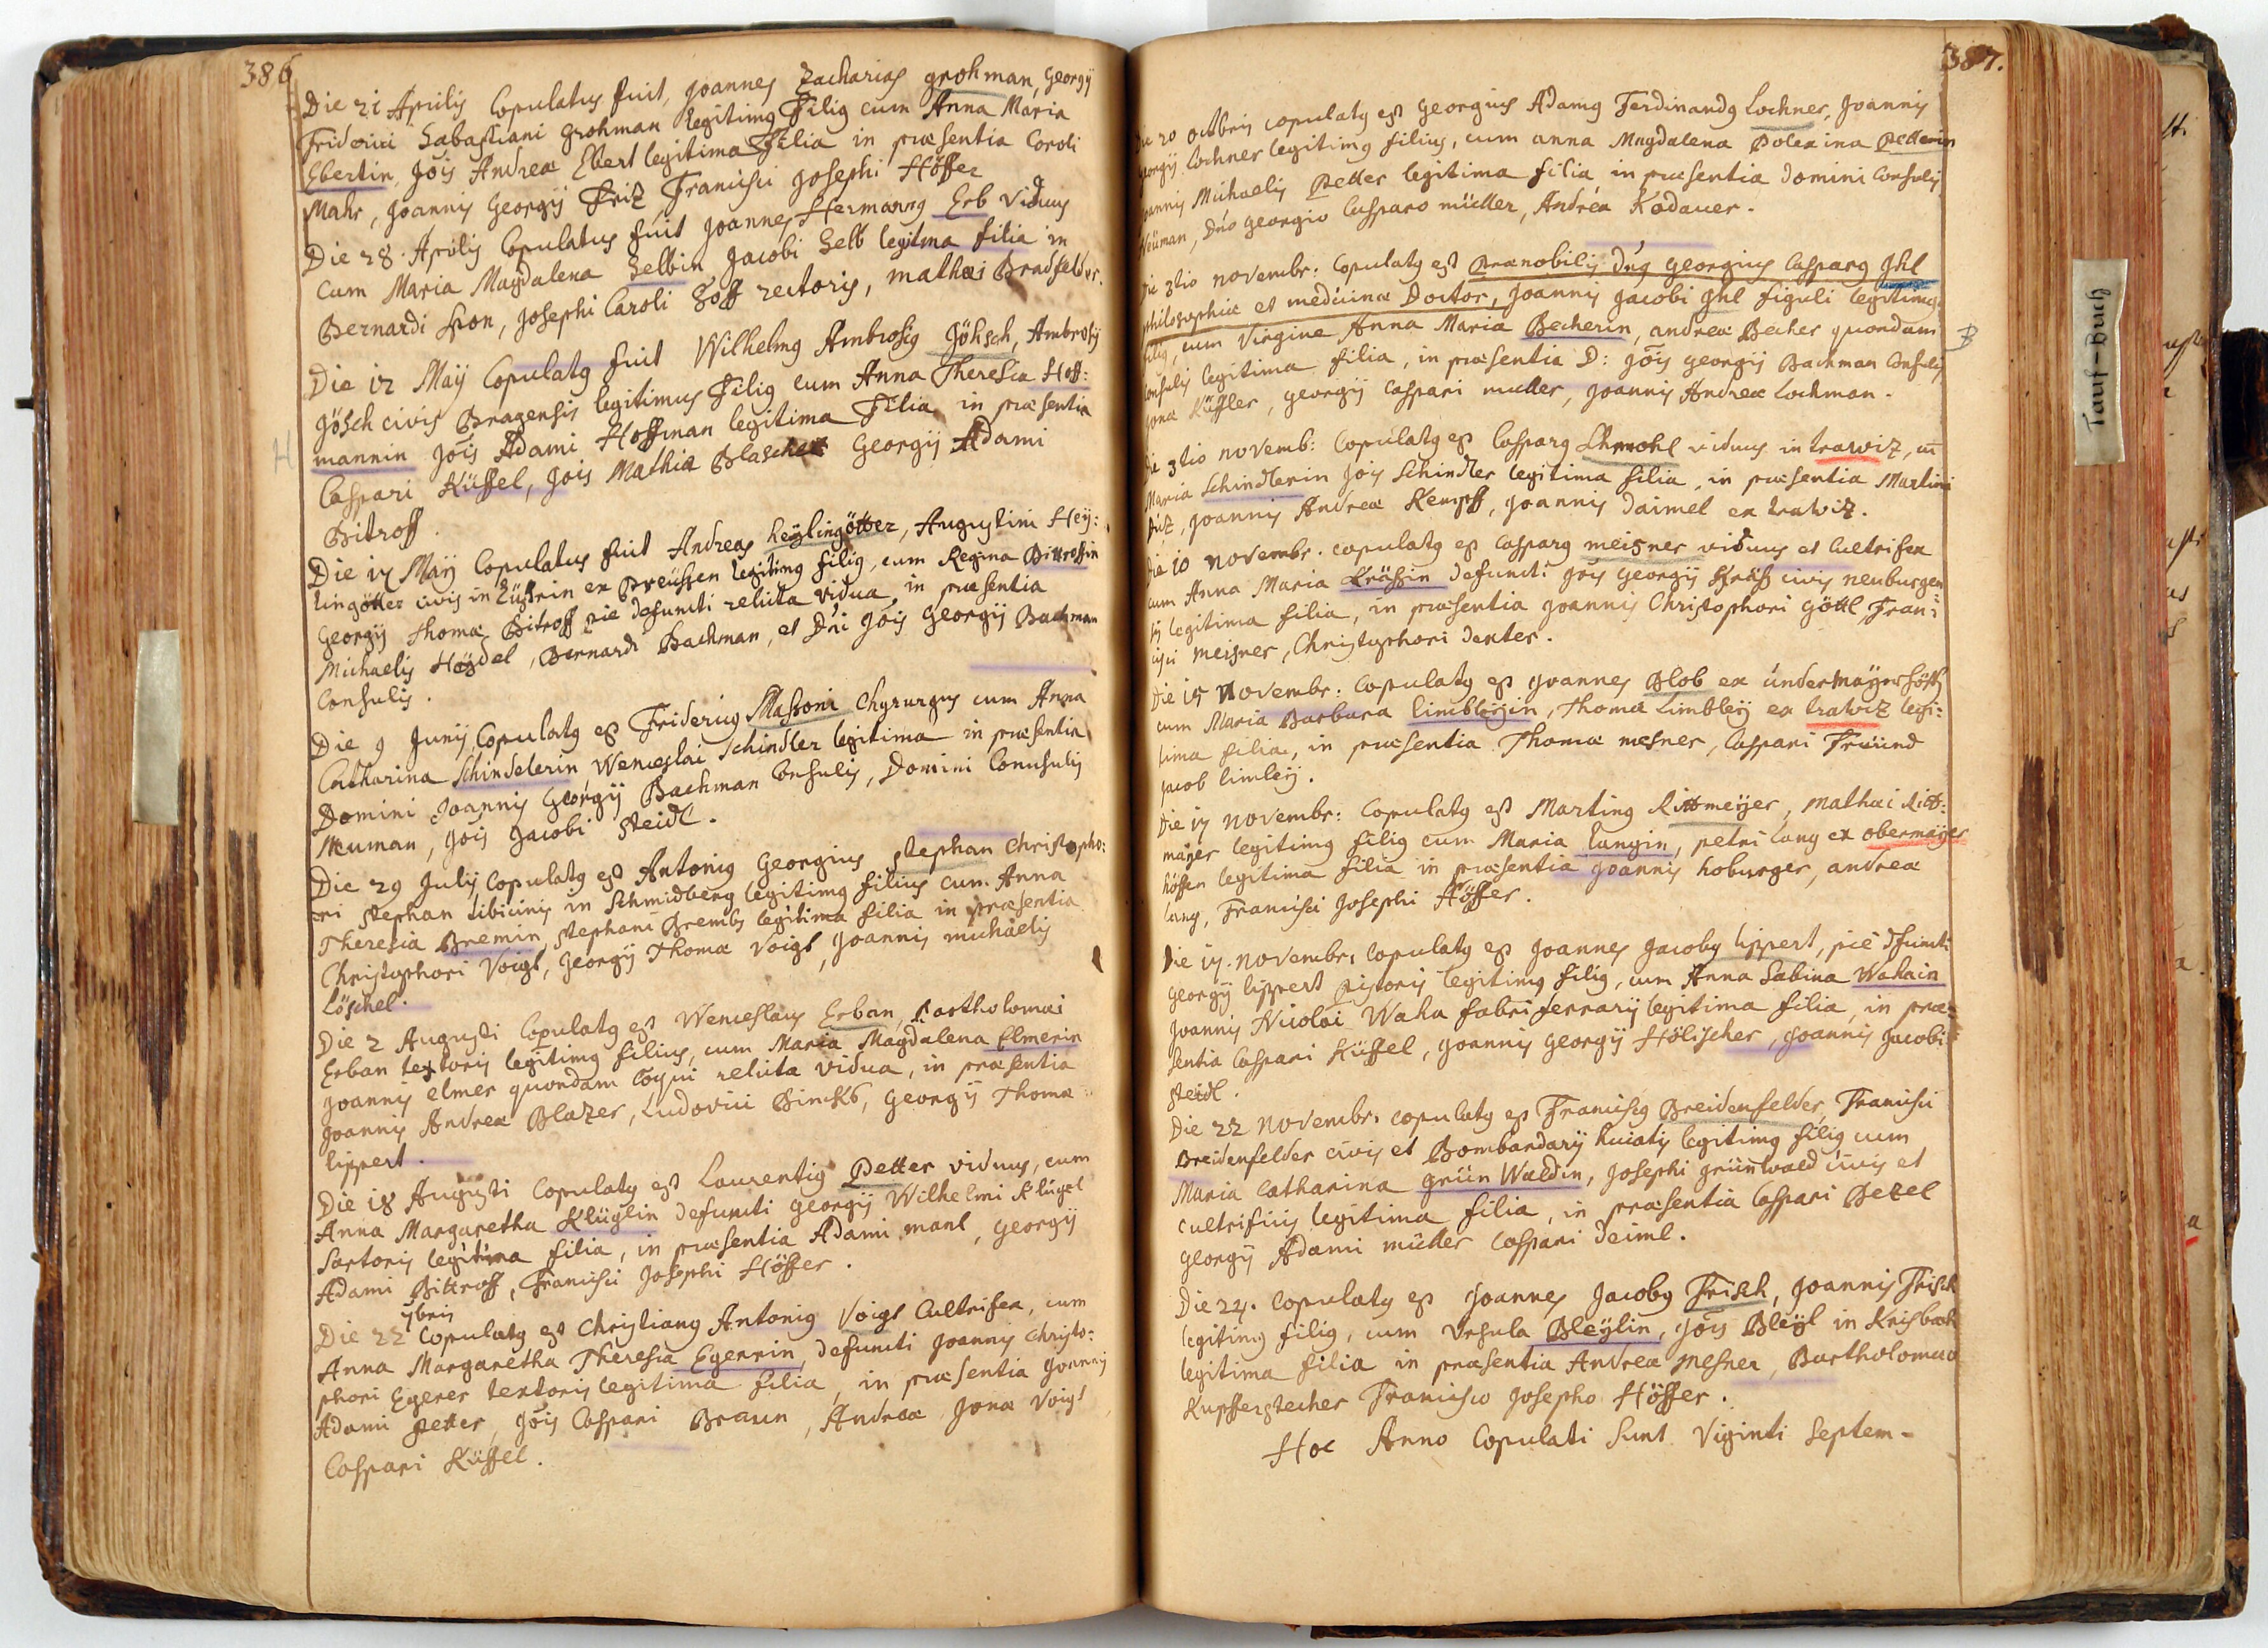 386
Die 21 Aprilis Copulatus fuit, Joannes Zacharias grohman, Georgÿ
Friderici Sabastiani Grohman legitimg Filig cum Anna Maria
Ebertin, Jois Andreæ Ebert legitima Filia in præsentia Caroli
Mahr, Joannis Georgÿ Friz Francisci Josephi Höffer
Die 28. Aprilis Copulatus fuit Joannes Hermanng Erb Viduus
Cum Maria Magdalena Selbin, Jacobi Selb legitma filia in
Bernardi Hon, Josephi Caroli Soff rectoris, mathæi Bradfelder.
Die 12 Maÿ Copulatg fuit Wilhelmg Ambrosig Göksch, Ambrosÿ
Gösch civis Bragensis legitimus Filig cum Anna Theresia Hoff:
mannin Jois Adami Hoffman legitima Filia in præsentia
Caspari Küffel, Jois Mathiæ Blaschek Georgÿ Adami
Bitroff.
Die 17 Maÿ Copulatus fuit Andreas heÿlingötter, Augustini Heÿ:
lingötter civis in Züstrin ex Breüssen legitimg filig, cum Regina Bittroffin
Georgÿ Thomæ Bitroff pie defuncti relicta vidua, in præsentia
Michaelis Höÿdel, Bernardi Bachman, et Dni Jois Georgÿ Bachman
Consulis.
Die 9 Junÿ Copulatg est Friderig Massoni Chyrurgus cum Anna
Catharina Schindelerin Wenceslai Schindler legitima in præsentia
Domini Joannis Georgÿ Bachman Consulis, Domini Conusulis
Neuman, Jois Jacobi Steidl.
Die 29 Julÿ Copulatg est Antonig Georgius Stephan Christopho:
ori Stephan tibicinis in Schmidberg legitimg filius cum Anna
Theresia Bremin, Stephani Brembs legitima filia in præsentia
Christophori Voigt, Georgÿ Thomæ Voigt, Joannis michaelis
Löschel.
Die 2 Augusti Copulatg est Wenceslaus Erban, Bartholomæi
Erban textoris legitimg filius, cum Maria Magdalena Elmerin
Joannis elmer quondam Coqui relicta vidua, in præsentia
Joannis Andreæ Blazer, Ludovici Binckb, Georgÿ Thomæ
lippert.
Die 18 Augusti Copulatg est Laurentig Petter viduus, cum
Anna Margaretha Klüglin defuncti Georgÿ Wilhelmi Klügel
Sartoris legitima filia, in præsentia Adami manl, Georgÿ
Adami Bittroff, Francisci Josephi Höffer.
Die 22 7bris Copulatg est Christiang Antonig Voigt Cultrifex, cum
Anna Margaretha Theresia Egerrin, defuncti Joannis Christo:
phori Egerer textoris legitima filia, in præsentia Joannis
Adami Petter, Jois Caspari Braun, Andreæ Jonæ Voigt
Caspari Küffel.
387.
Die 20 octbris copulatg est Georgius Adamg Ferdinandg Lochner, Joannis
Georgÿ Lochner legitimg filius, cum anna Magdalena Polexina Petterin
Joannis Michaelis Petter legitima filia in præsentia Domini Consulis
Neüman, Dno Georgio Casparo müller, Andrea Kadauer.
Die 3tio novembr: Copulatg est Prænobilis Dng Georgius Casparg Ihl
philosophiæ et medicinæ Doctor, Joannis Jacobi Ihl figuli legitimg
filig, cum Virgine Anna Maria Becherin, andreæ Becher quondam
Consulis legitima filia, in præsentia D: Jois georgÿ Bachman Consulis
Jonæ Küffler, georgÿ Caspari muller, Joannis Andreæ Lochman.
Die 3tio novemb: Copulatg est Casparg Schmohl viduus in trawiz, cu
Maria Schindlerin Jois Schindler legitima filia, in præsentia Martini
Diz, Joannis Andreæ Kempff, Joannis Daimel ex trawiz.
Die 10 novembr. copulatg est Casparg meisner viduus et Cultrifex
cum Anna Maria Krässin defuncti Jois Georgÿ Kräss civis neuburgen
sis legitima filia, in præsentia Joannis Christophori göttl, Fran:
cisci meisner, Christophori Dexter.
Die 15 Novembr: Copulatg est Joannes Blob ex üntermaÿerhöffn
cum Maria Barbara limbleÿin, Thomæ Limbleÿ ex trawiz legi:
tima filia, in præsentia Thomæ mesner, Caspari Freünd
Jacob limleÿ.
Die 17 novembr: Copulatg est Marting Rittmeÿer, mathæi Ritt:
mäÿer legitimg filig cum Maria langin, petri lang ex obermaÿer
höffen legitima filia in præsentia Joannis hoburger, andreæ
lang, Francisci Josephi Höffer.
Die 17. novembr: Copulatg est Joannes Jacobg lippert, pie dfuncti
Georgÿ lippert pistoris legitimg filig, cum Anna Sabina Wahain
Joannis Nicolai Waha fabri ferrarÿ legitima filia, in præ:
sentia Caspari Küffel, Joannis Georgÿ Hölischer, Joannis Jacobi
Steidl.
Die 22 novembr: copulatg est Franciscg Breidenfelder, Francisci
Breidenfelder civis et Bombardarÿ huiatis legitimg filig cum
Maria Catharina grün Waldin, Josephi grünwald civis et
cultrificis legitima filia, in præsentia Caspari Bezel
Georgÿ Adami müller Caspari Deiml.
Die 24. Copulatg est Joannes Jacobg Frisch, Joannis Frisch
legitimg filig, cum Ursula Bleÿlin, Jois Bleÿl in Krisbach
legitima filia in præsentia Andreæ mesner, Bartholomæo
Kupfferstecher Francisco Josepho Höffer.
Hoc Anno Copulati Sunt Viginti Septem-
Tauf-Buch